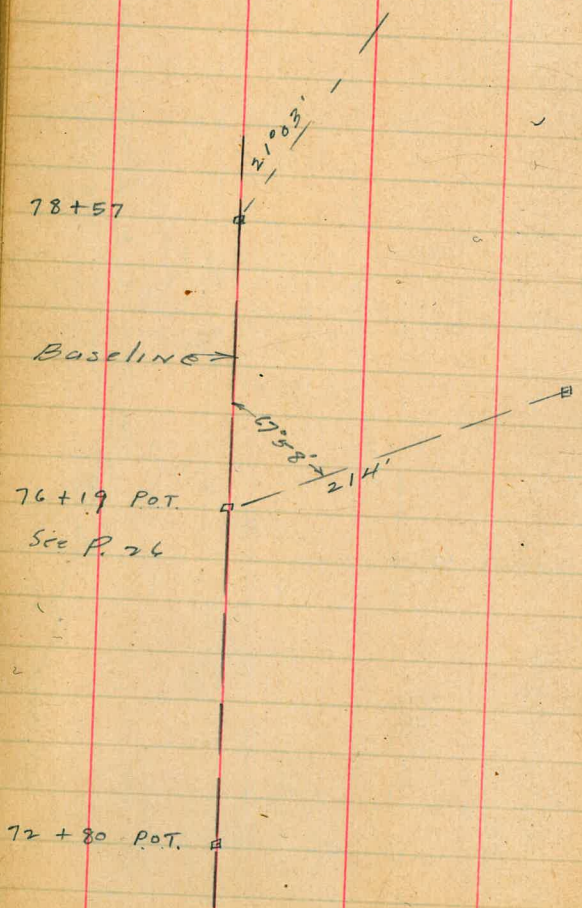 21°03'
78+57
Baseline
67°58'
214'
76+19 P.O.T.
See P. 26
72+80 P.O.T.